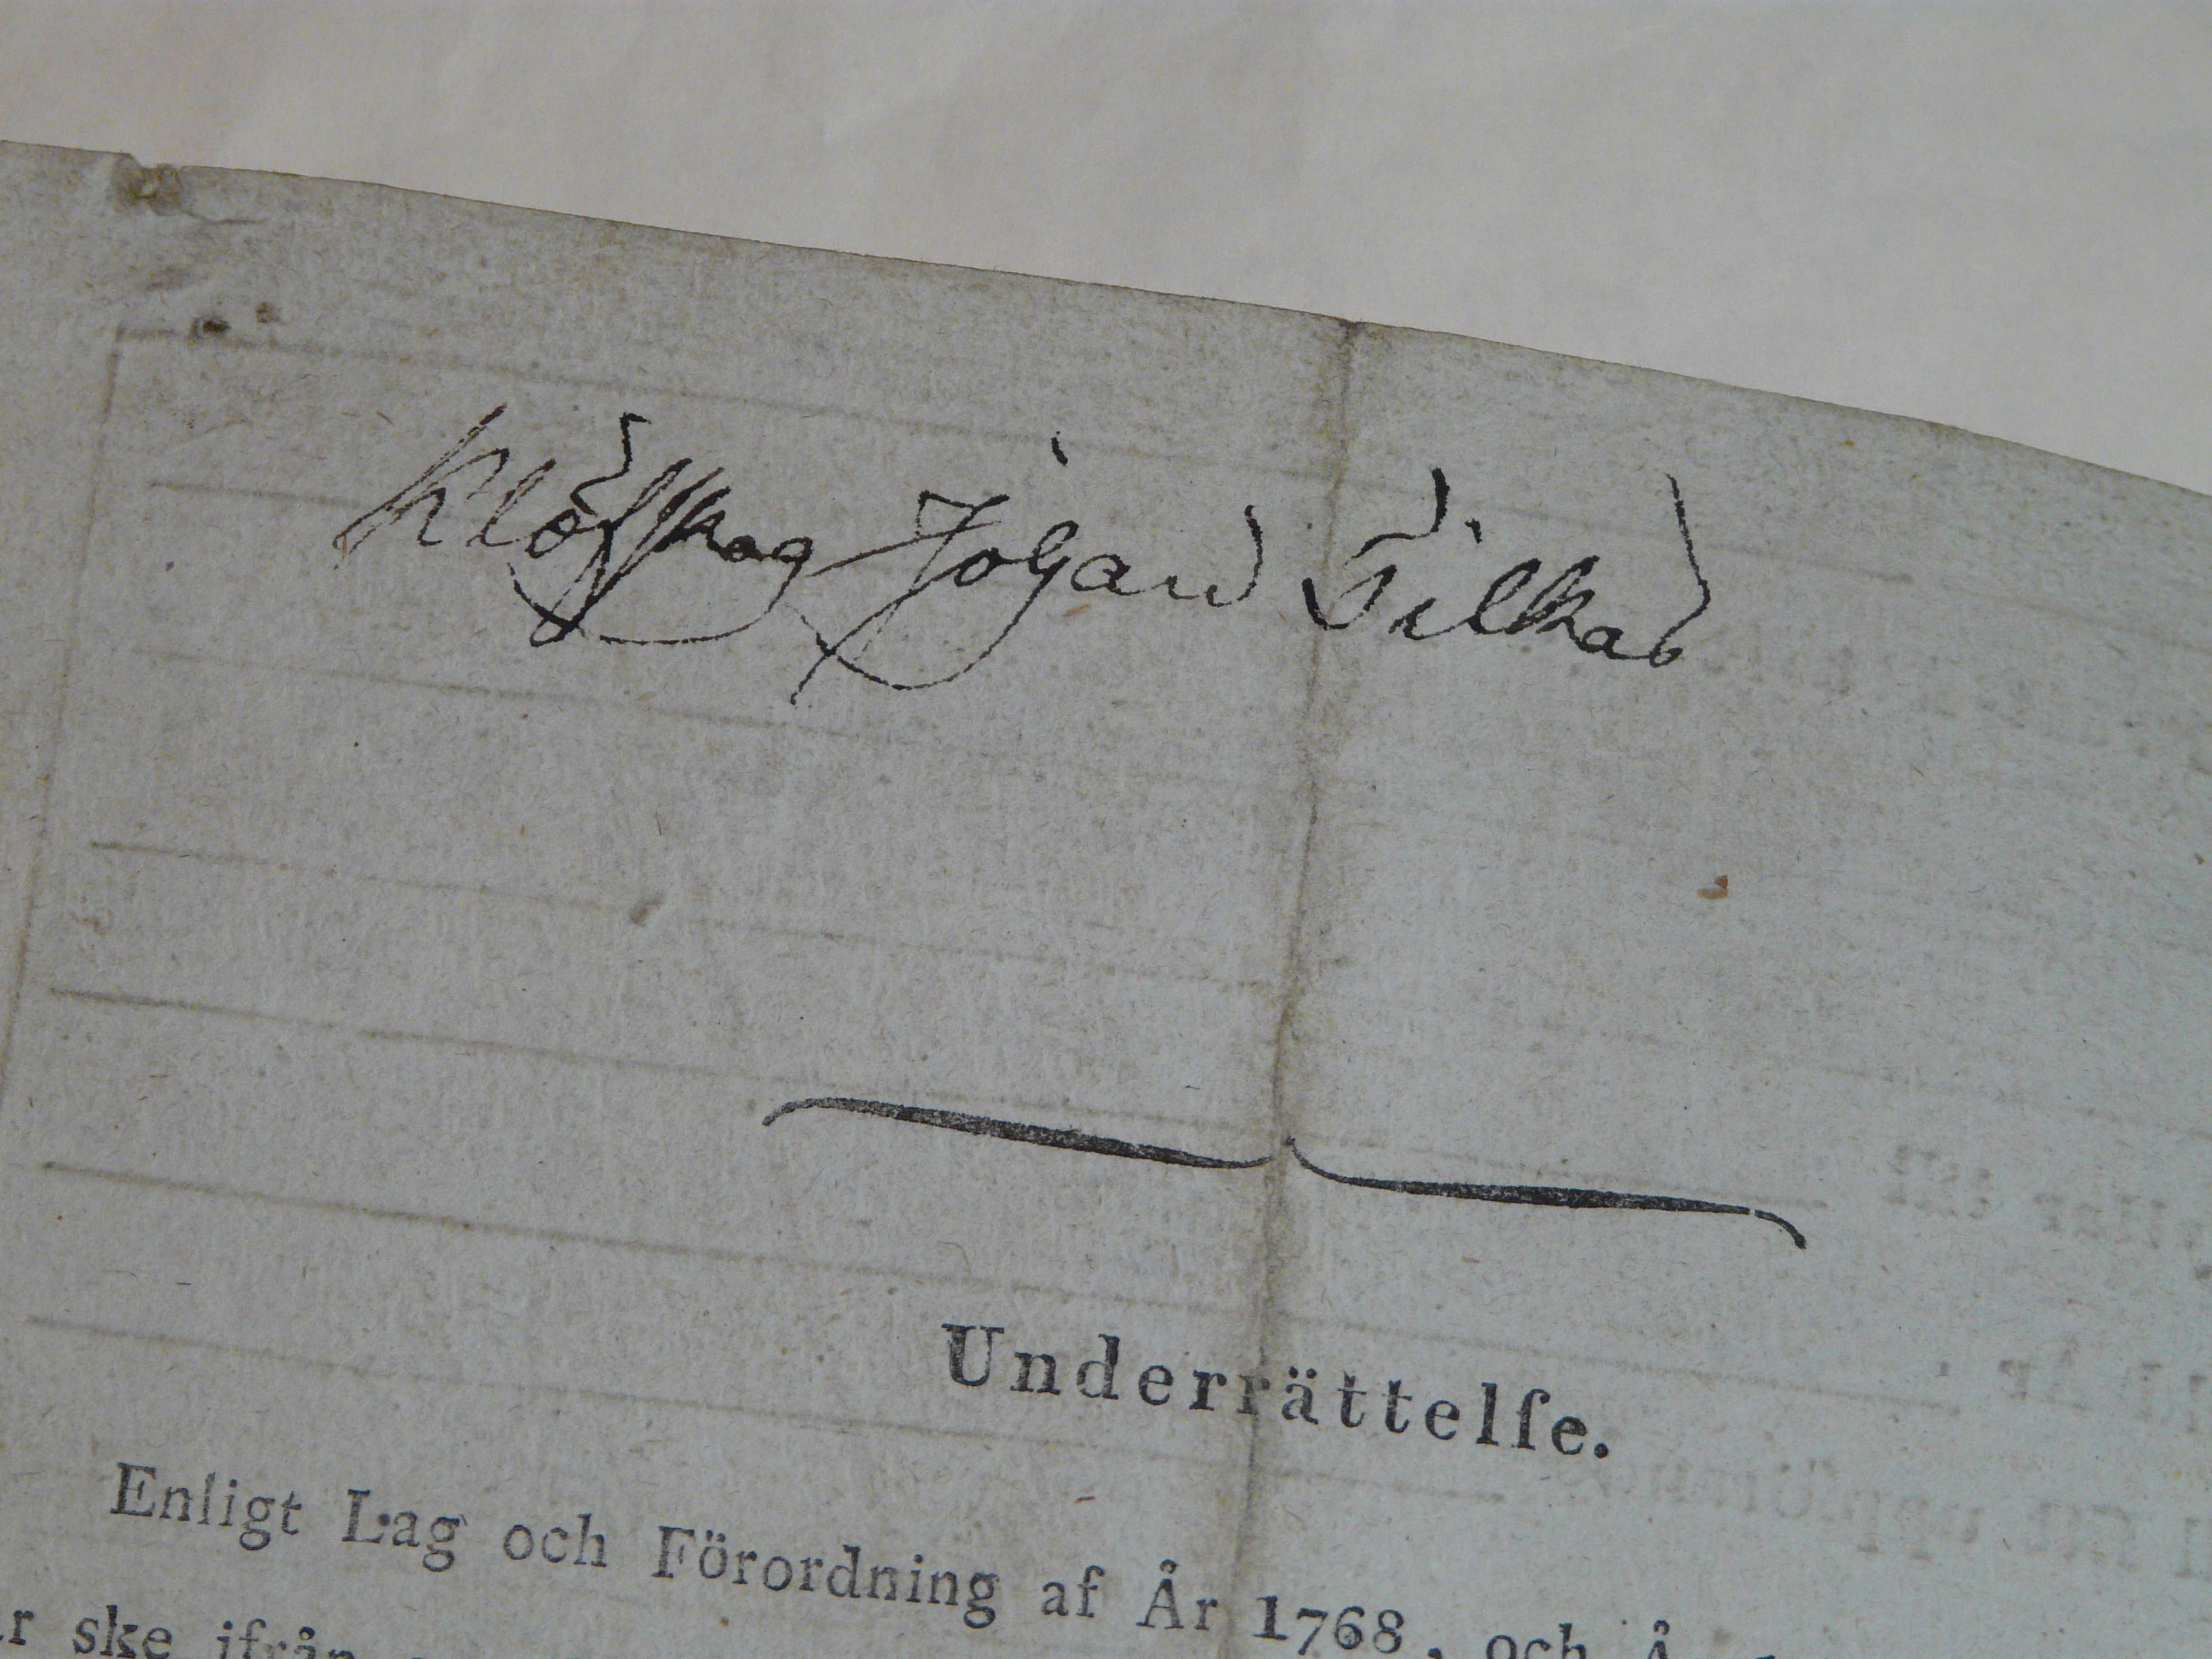 Klöfskog Johan Filkas
Underrättelſe.
Enligt Lag och Förordning af År 1768, och Å
r ske ifrån